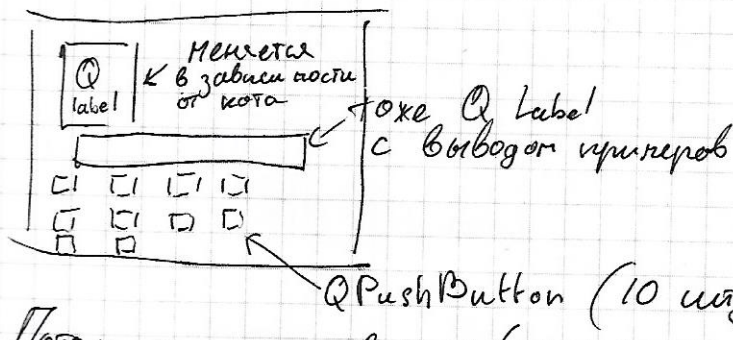 Q
label
Меняется
в зависимости
от кота
тоже QLabel
с выводом примеров
QPushButton (10 шт